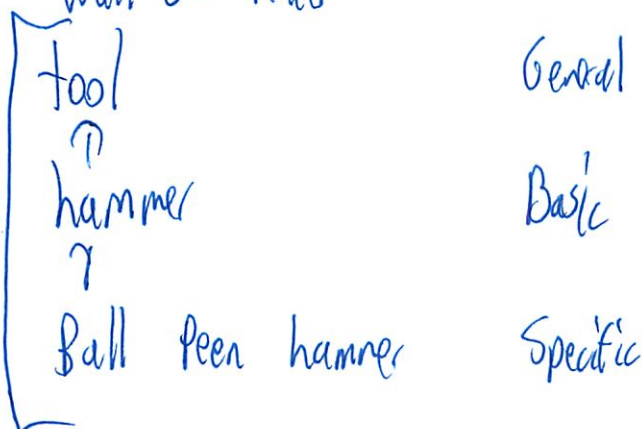 tool General
hammer Basic
Ball Peen hammer Specific